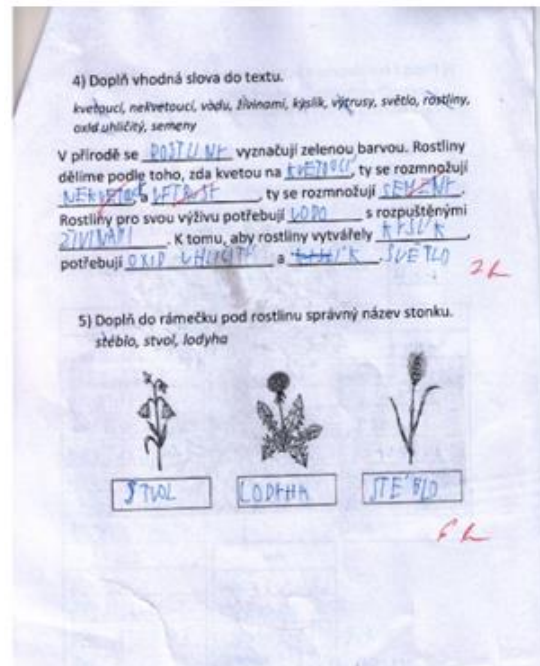 4) Doplň vhodná slova do textu.
kvetoucí, nekvetoucí, vodu, živinami, kyslík, výtrusy, světlo, rostliny,
oxid uhličitý, semeny
V přírodě se ROSTLINY vyznačují zelenou barvou. Rostliny
dělíme podle toho, zda kvetou na KVETOUCÍ, ty se rozmnožují
, ty se rozmnožují SEMENY.
Rostliny pro svou výživu potřebují VODO s rozpuštěnými
ŽIVINAMI. K tomu, aby rostliny vytvářely KYSLÍK,
potřebují OXID UHLIČITÝ a . SVĚTLO
5) Doplň do rámečku pod rostlinu správný název stonku.
stéblo, stvol, lodyha
STVOL LODYHA STÉBLO